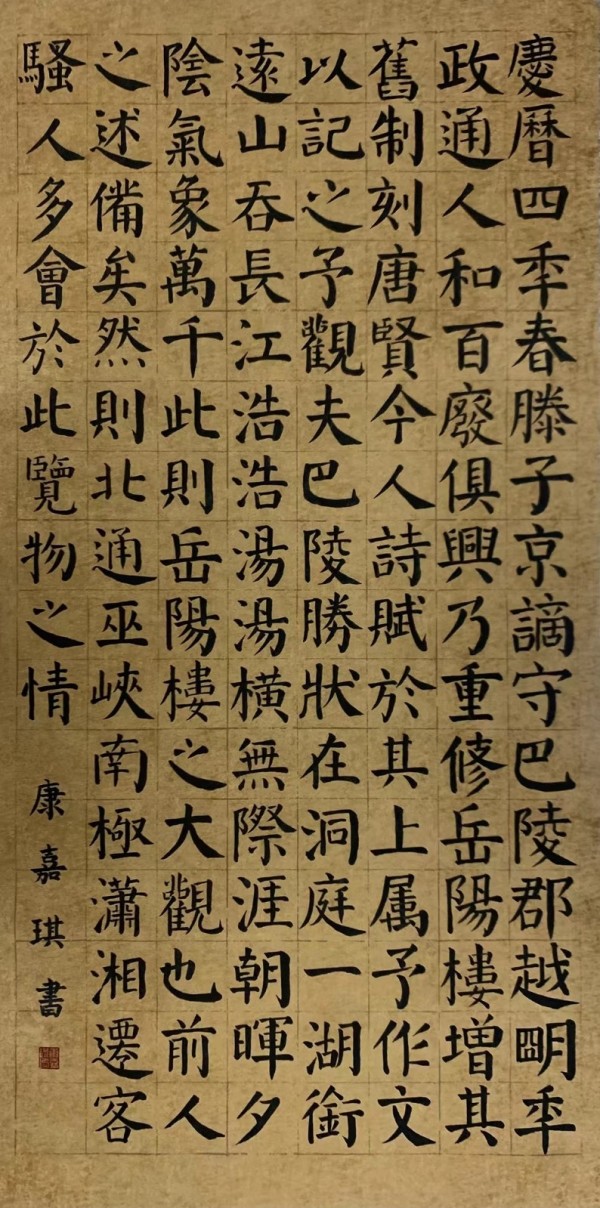 慶曆四秊春滕子京謫守巴陵郡越朙秊
政通人和百廢俱興乃重修岳陽樓增其
舊制刻唐賢今人詩賦於其上属予作文
以記之予觀夫巴陵勝狀在洞庭一湖銜
遠山吞長江浩浩湯湯橫無際涯朝暉夕
陰氣象萬千此則岳陽樓之大觀也前人
之述備矣然則北通巫峽南極瀟湘遷客
騷人多會於此覽物之情
康嘉琪書